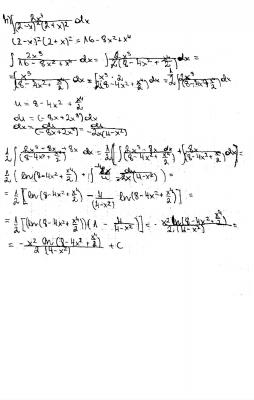 ∫ 2x³/((2-x)²(2+x)²) dx
(2-x)²(2+x)² = 16-8x²+x⁴
∫ 2x³/(16-8x²+x⁴) dx = ∫ 2x³/(2[8-4x²+x⁴/2]) dx =
= ∫ x³/(8-4x²+x⁴/2) dx = ∫ x³·2/(2(8-4x²+x⁴/2)) dx = 1/2 ∫ 2x³/(8-4x²+x⁴/2) dx
u = 8-4x²+x⁴/2
du = (-8x+2x³)dx
dx = du/(-8x+2x³) = du/(-2x(4-x²))
1/2 ∫ (2x³-8x+8x)/(8-4x²+x⁴/2) dx = 1/2 [∫ (2x³-8x)/(8-4x²+x⁴/2) dx + ∫ 8x/(8-4x²+x⁴/2) dx] =
1/2 (ln(8-4x²+x⁴/2) + ∫ du/(-2x(4-x²))) =
= 1/2 [ln(8-4x²+x⁴/2) - 4/(4-x²) ln(8-4x²+x⁴/2)] =
= 1/2 [ln(8-4x²+x⁴/2)(1 - 4/(4-x²))] = -x² ln(8-4x²+x⁴/2)/(2(4-x²)) =
= -x²/2 ln(8-4x²+x⁴/2)/(4-x²) + C